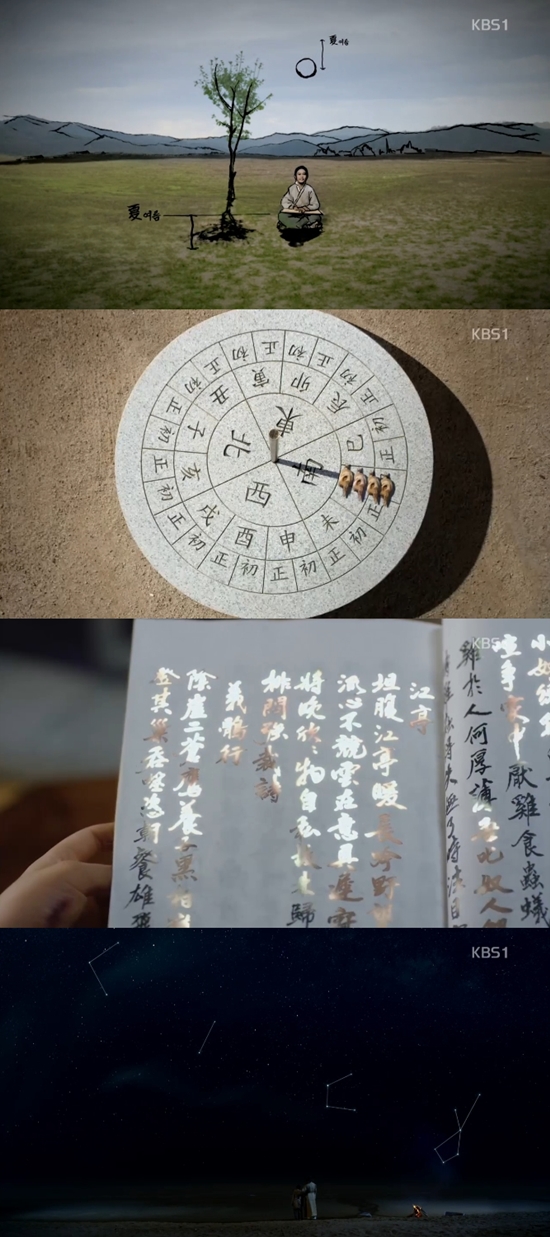 KBS1
夏 여름
夏 여름
KBS1
東
南
西
北
子 丑 寅 卯 辰 巳 未 申 酉 戌 亥
初 正 初 正 初 正 初 正 初 正 初 正 初 正 初 正 初 正
KBS1
小奴
喧爭家中厭雞食蟲蟻
雞於人何厚薄吾叱奴人
江亭
坦腹江亭暖長吟野
心不競雲在意俱遲寂
將晚欣欣物自私 歸
排悶強裁詩
義鶻行
陰崖二蒼鷹養子黑柏
登其巢吞噬恣朝餐雄飛
KBS1